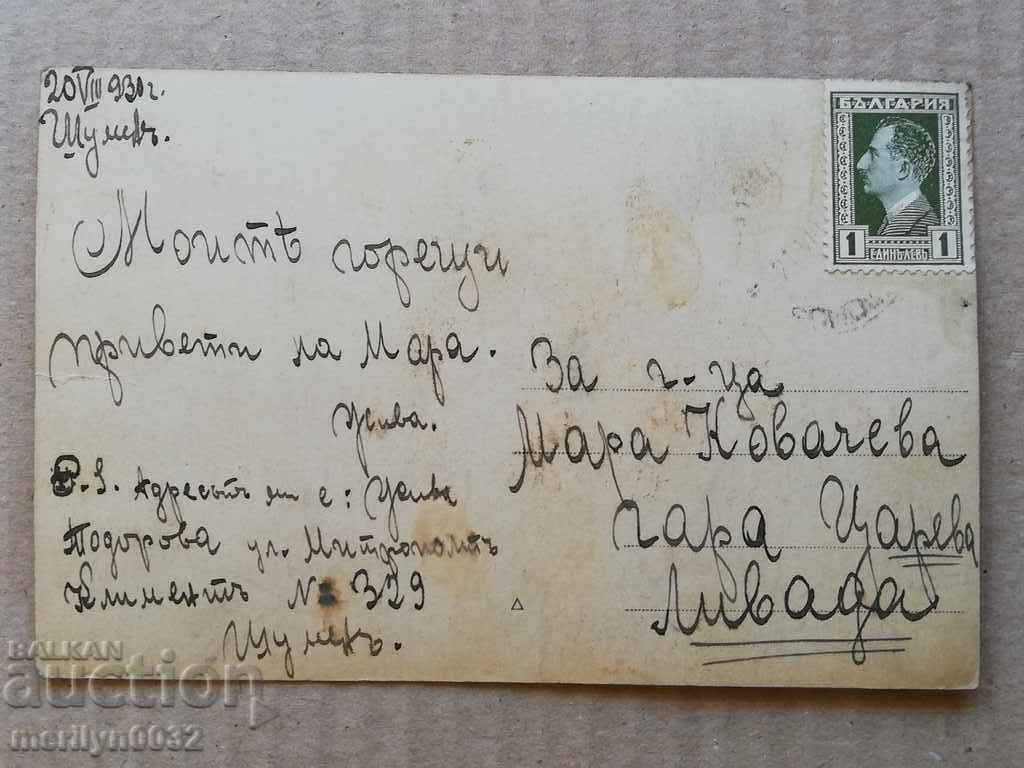 20 VIII 930 г.
Шуменъ.
БЪЛГАРИЯ
1 1
ЕДИНЪ ЛЕВЪ
Моитѣ горещи
привети на Мара.
Жива.
P.S. Адресътъ ми е:
Тодорова ул. Митрополитъ
Климентъ № 329
Шуменъ.
За г-ца
Мара Ковачева
гара Царева
Ливада
BALKAN
auction
merilyn0032